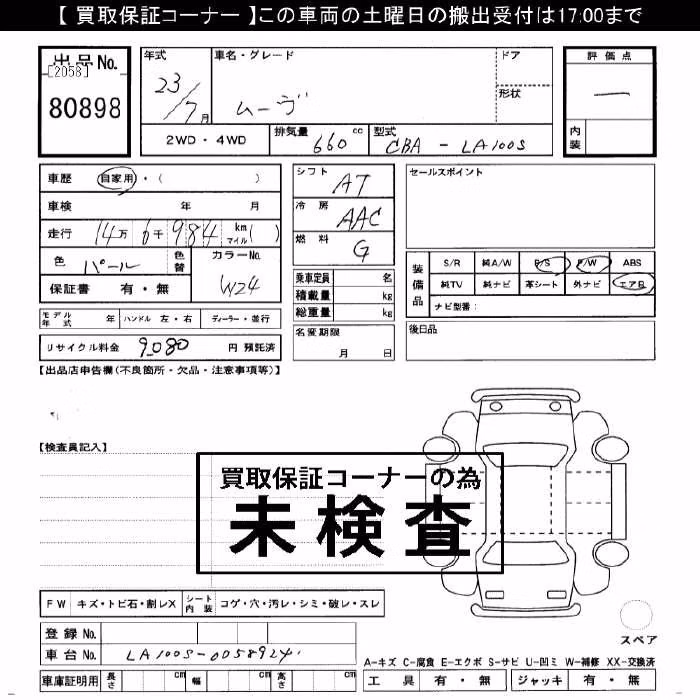 【 買取保証コーナー 】この車両の土曜日の搬出受付は17:00まで
出品No.
[2058]
80898
年式
23/7月
車名・グレード
ムーヴ
ドア
形状
評価点
—
内装
2WD・4WD
排気量 660 cc
型式 CBA - LA100S
車歴 自家用・( )
車検 年 月
走行 14万6千984 km マイル( )
色 パール
色替
カラーNo. W24
保証書 有・無
シフト AT
冷房 AAC
燃料 G
乗車定員 名
積載量 kg
総重量 kg
名変期限
月 日
セールスポイント
装備品
S/R 純A/W P/S P/W ABS
純TV 純ナビ 革シート 外ナビ エアB
ナビ型番:
後日品
モデル年式 年 ハンドル 左・右 ディーラー・並行
リサイクル料金 9,080 円 預託済
【出品店申告欄(不良箇所・欠品・注意事項等)】
【検査員記入】
買取保証コーナーの為
未検査
FW キズ・トビ石・割レX シート内装 コゲ・穴・汚レ・シミ・破レ・スレ
登録No.
車台No. LA100S-0058924
車庫証明用 長さ cm 幅 cm 高さ cm
スペア
A-キズ C-腐食 E-エクボ S-サビ U-凹ミ W-補修 XX-交換済
工具 有・無 ジャッキ 有・無